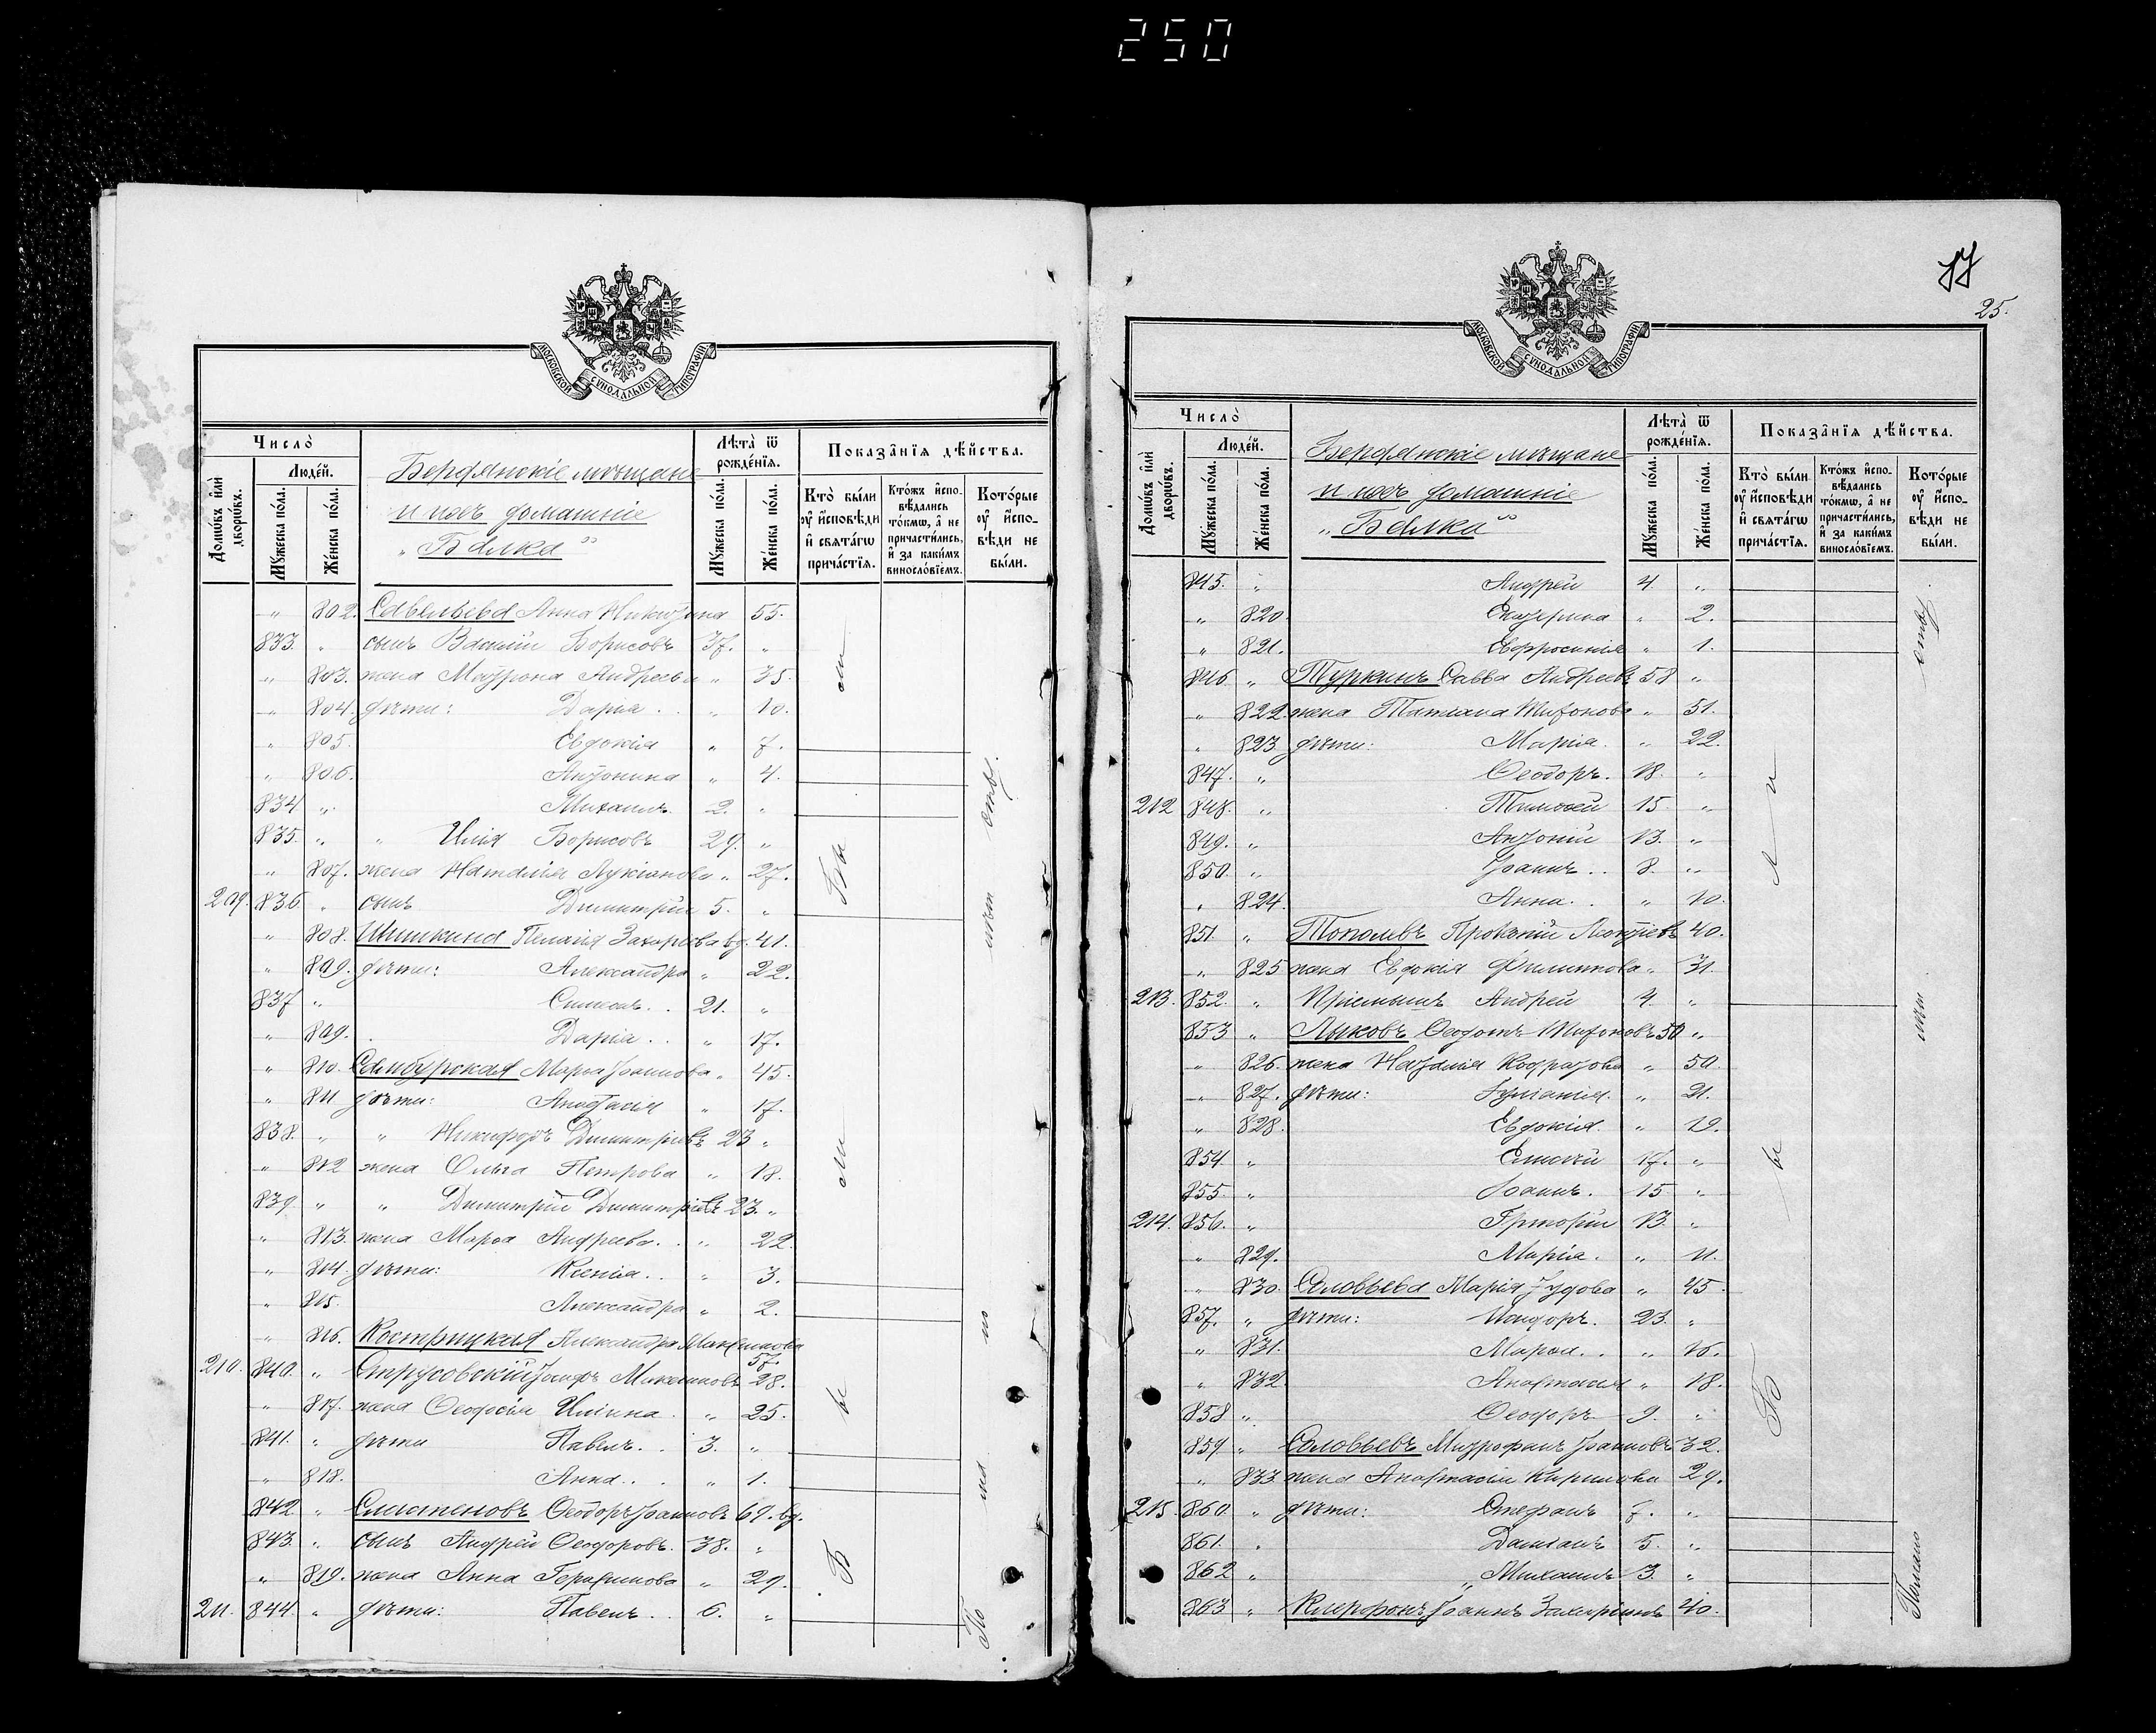 250
МОСКОВСКОЙ СѴНОДАЛЬНОЙ ТИПОГРАФІИ
Число̀
Домѡ́въ и҆лѝ дворѡ́въ.
Люде́й.
Мꙋ́жеска по́ла.
Же́нска по́ла.
Бердянскіе мѣщане
и ихъ домашніе
„Балка“
Лѣта̀ ѿ рожде́нїѧ.
Мꙋ́жеска по́ла.
Же́нска по́ла.
Показа̑нїѧ дѣ́йства.
Кто̀ бы́ли ᲂу҆ и҆сповѣди и҆ свѧта́гѡ прича́стїѧ.
Кто́жъ и҆спо-вѣдались то́кмѡ, а҆ не причасти́лись, и҆ за каки́мъ виносло́вїемъ.
Кото́рые ᲂу҆ и҆спо-вѣди не бы́ли.
„ 802. Савельева Анна 55.
833. „ сынъ Василій Борисовъ 37. „
„ 803. жена Матрона Андреева „ 35.
„ 804. дѣти: Дарія „ 10.
„ 805. Евдокія „ 7.
„ 806. Антонина „ 4.
834 „ Михаилъ 2. „
835. „ „ Илія Борисовъ 29. „
„ 807. жена Наталія Лукіанова „ 27.
209. 836. „ сынъ Димитрій 5. „
„ 808. Шишкина Пелагія Захаріева вд. 41.
„ 809. дѣти: Александра „ 22.
837 „ Симеонъ 21. „
„ 809. Дарія „ 17.
„ 810. Самбурская Марѳа Іоаннова „ 45.
„ 811 дѣти: Анастасія „ 17.
838. „ „ Никифоръ Димитріевъ 23 „
„ 812 жена Ольга Петрова „ 18.
839. „ „ Димитрій Димитріевъ 23. „
„ 813. жена Марѳа Андреева „ 22
„ 814. дѣти: Ксенія „ 3.
„ 815. Александра „ 2.
„ 816. Кострицкая Александра Максимова 57.
210. 840. „ Струсовскій Іосифъ Максимовъ 28.
„ 817. жена Ѳеодосія Иліина „ 25.
841. „ дѣти Павелъ 3. „
„ 818. Анна „ 1.
842. „ Ѳеодоръ Іоанновъ 69. вд.
843. „ сынъ Андрей Ѳеодоровъ 38. „
„ 819. жена Анна Герасимова „ 29.
211. 844. „ дѣти: Павелъ 6. „
Бы ли
Бы ли
По
25.
МОСКОВСКОЙ СѴНОДАЛЬНОЙ ТИПОГРАФІИ
Число̀
Домѡ́въ и҆лѝ дворѡ́въ.
Люде́й.
Мꙋ́жеска по́ла.
Же́нска по́ла.
Бердянскіе мѣщане
и ихъ домашніе
„Балка“
Лѣта̀ ѿ рожде́нїѧ.
Мꙋ́жеска по́ла.
Же́нска по́ла.
Показа̑нїѧ дѣ́йства.
Кто̀ бы́ли ᲂу҆ и҆сповѣди и҆ свѧта́гѡ прича́стїѧ.
Кто́жъ и҆спо-вѣдались то́кмѡ, а҆ не причасти́лись, и҆ за каки́мъ виносло́вїемъ.
Кото́рые ᲂу҆ и҆спо-вѣди не бы́ли.
845. „ Андрей 4. „
„ 820. Екатерина „ 2.
„ 821. Евфросинія „ 1.
846 „ Туркинъ Савва Андреевъ 58 „
„ 822. жена Татіана Тихонова „ 51.
„ 823 дѣти: Марія „ 22.
847. „ Ѳеодоръ. 18. „
212 848. „ Тимоѳей 15. „
849. „ Антоній 13. „
850. „ Іоаннъ 8. „
„ 824. Анна „ 10.
851. „ Тополевъ Прокопій Леонтіевъ 40.
„ 825 жена Евдокія Филиппова „ 31.
213. 852. „ Пріемышъ Андрей 4. „
853 „ Лыковъ Ѳеодотъ Тихоновъ 50 „
„ 826. жена Наталія Кодратова „ 50.
„ 827. дѣти: „ 21.
„ 828. Евдокія. „ 19.
854. „ Елисей 17. „
855. „ Іоаннъ. 15. „
214. 856. „ Григорій 13. „
„ 829. Марія. „ 11.
„ 830. Соловьева Марія Іудова „ 45.
857. „ дѣти: Исидоръ. 23. „
„ 831. Марѳа „ 16.
„ 832. Анастасія „ 18.
858 „ Ѳеодоръ 9. „
859 „ Соловьевъ Митрофанъ Іоанновъ 32.
„ 833 жена Анастасія Кириллова 29.
215. 860. „ дѣти: Стефанъ 7. „
861. „ Даміанъ 5. „
862 „ „ Михаилъ 3. „
863 „ Іоаннъ Захаріинъ 40.
Б ы л и